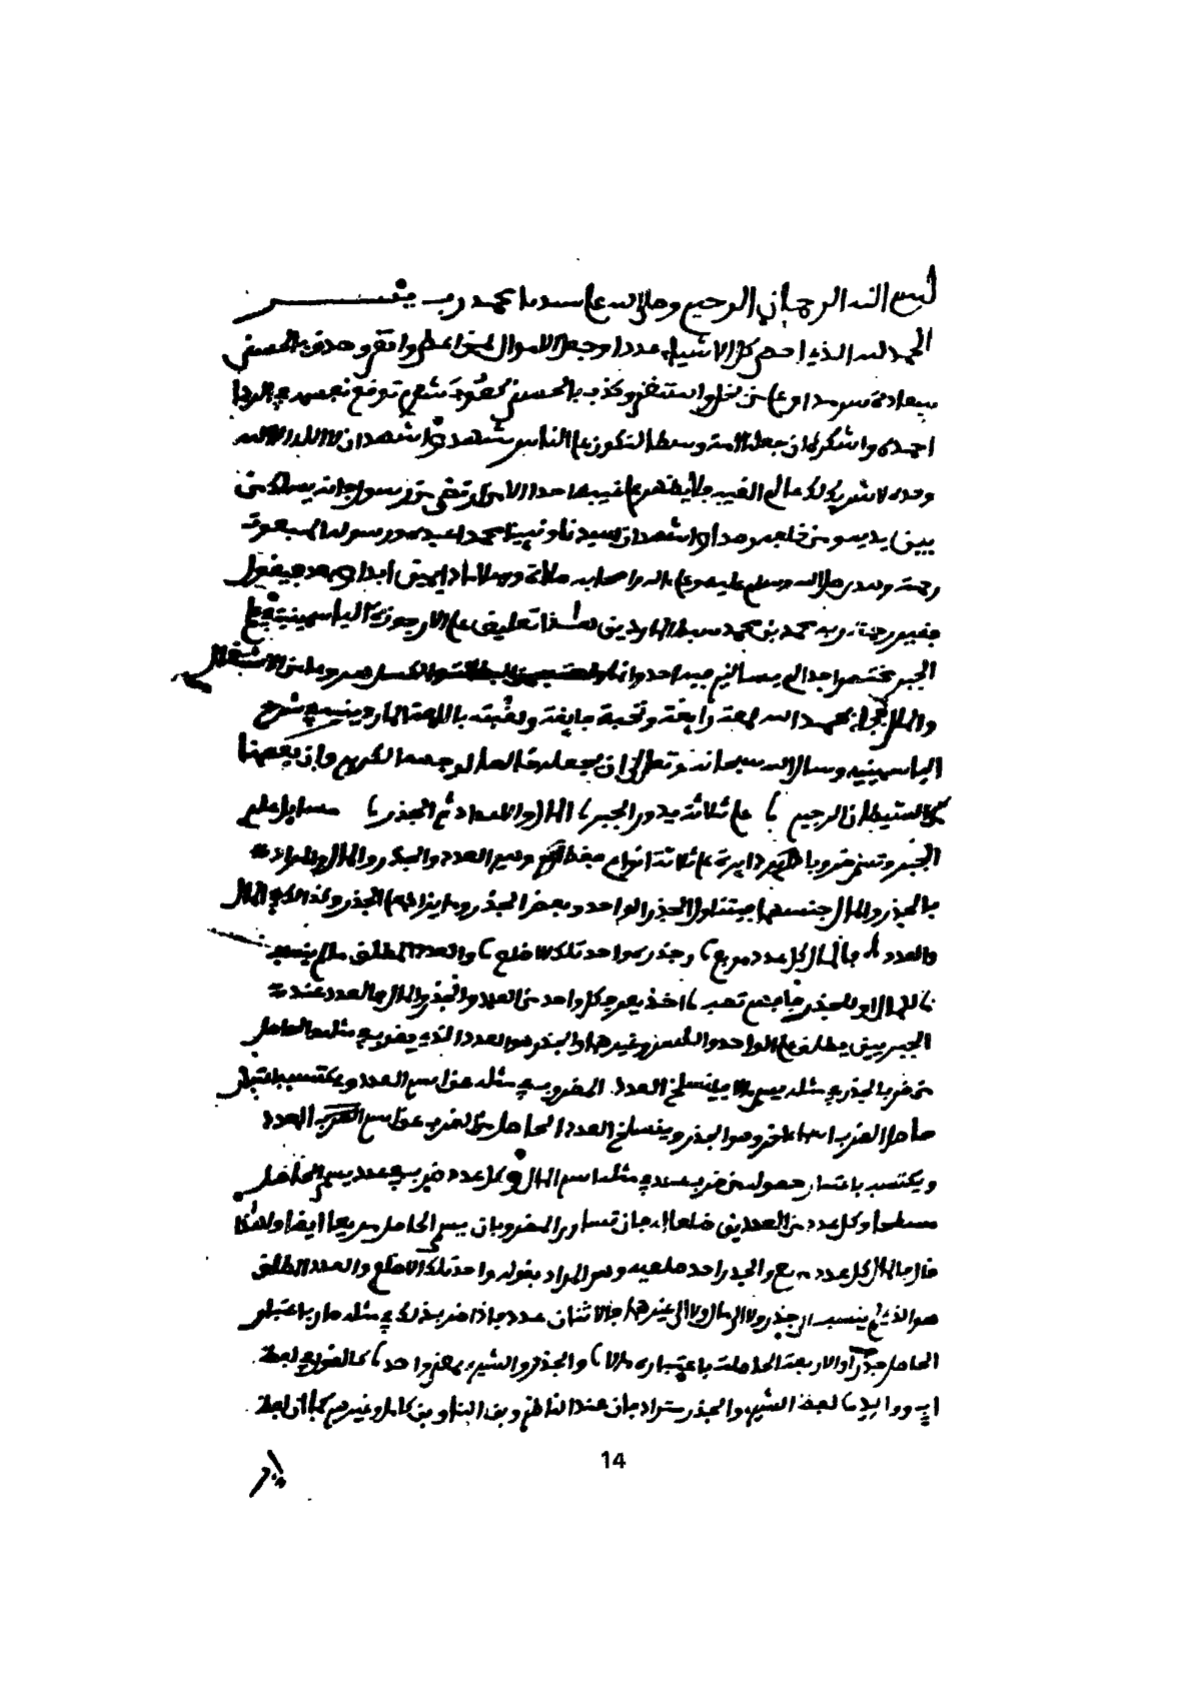 بسم الله الرحمان الرحيم وصلى الله على سيدنا محمد رب يسر
الحمد لله الذي احصى كل الاشياء عددا وجعل الاموال لمن اعطى واتقى وصدق بالحسنى
سعادة سرمدا وعلى من بخل واستغنى وكذب بالحسنى
احمده واشكره ان جعلنا امة وسطا لنكون على الناس شهدا واشهد ان لا اله الا الله
وحده لا شريك له عالم الغيب فلا يظهر على غيبه احدا الا من ارتضى من رسول فانه يسلك من
بين يديه ومن خلفه رصدا واشهد ان سيدنا ونبينا محمدا عبده ورسوله المبعوث
رحمة وهدى صلى الله وسلم عليه وعلى اله واصحابه صلاة وسلاما دايمين ابدا وبعد فيقول
فقير رحمة ربه محمد بن محمد سبط المارديني هذا تعليق على الارجوزة الياسمينية في علم
الجبر مختصر
والملل فجاء بحمد الله لمعة رايقة وتحفة فايقة ولقبته باللمعة الماردينية في شرح
الياسمينية وسال الله سبحانه وتعالى ان يجعله خالصا لوجهه الكريم وان يعصمنا
من الشيطان الرجيم على ثلاثة يدور الجبر المال والاعداد ثم الجذر مسايل علم
الجبر وتسمى ضروبا دايرة على ثلاثة انواع فقط وهي العدد والجذر والمال والمراد
بالجذر والمال جنسهما فيتناول الجذر الواحد وبعض الجذر وما زاد على الجذر وكذا في المال
والعدد فالمال كل عدد مربع وجذره واحد تلك الاضلع والعدد المطلق ما لم ينسب
للمال او للجذر فافهم تصب اخذ يعرف كل واحد من العدد والجذر والمال فالعدد عند
الجبريين يطلق على الواحد والكسر وغيرهما والجذر هو العدد الذي يضرب في مثله فالحاصل
من ضرب الجذر في مثله يسمى مالا فينسلخ العدد المضروب في مثله عن اسم العدد ويكتسب باعتبار
حاصل الضرب اسما اخر وهو الجذر وينسلخ العدد الحاصل من الضرب عن اسم العدد
ويكتسب باعتبار حصوله من ضرب عدد في مثله اسم المال وكل عدد ضرب في عدد يسمى الحاصل
مسطحا وكل عدد من العددين ضلعا له فان تساوى المضروبان يسمى الحاصل مربعا ايضا ولهذا
قال فالمال كل عدد مربع والجذر احد ضلعيه وهو المراد بقوله واحد تلك الاضلع والعدد المطلق
هو الذي لم ينسب الى جذر ولا الى مال ولا الى غيرهما فالاثنان عدد فاذا ضرب ذلك في مثله صار باعتبار
الحاصل جذرا والاربعة الحاصلة باعتباره مالا والجذر والشيء بمعنى واحد كالقول في لفظة
اب ووالد لفظة الشيء والجذر مترادفان عند الناظم وبن البنا وبن كامل وغيرهم كما ان لفظة
14